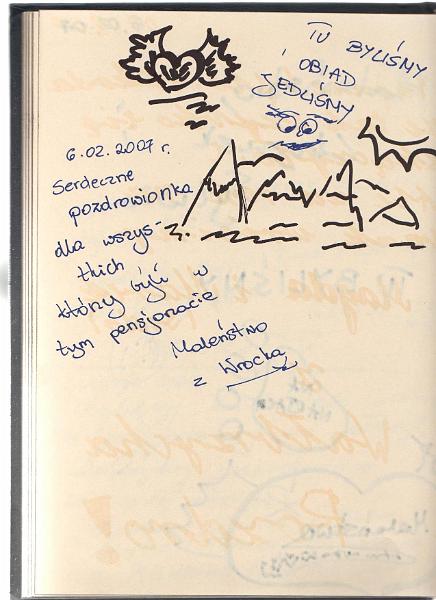 TU BYLIŚMY
I OBIAD
JEDLIŚMY
6.02.2007 r.
Serdeczne
pozdrowionka
dla wszys-
tkich
którzy byli w
tym pensjonacie
Maleństwo
z Wrocka
Wałbrzycha
Pozdro!